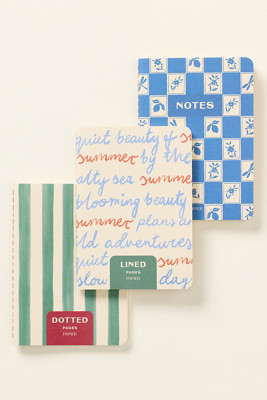 NOTES
quiet beauty of s
summer by the
alty sea summe
blooming beauty
summer plans a
ld adventures
quiet summe
slow day
LINED
PAGES
PAPIER
DOTTED
PAGES
PAPIER